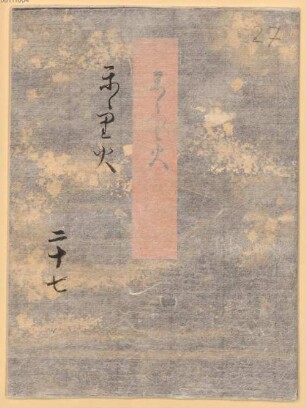 27
かゝり火
里火
二十七